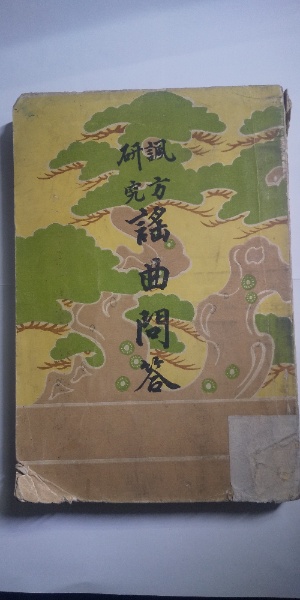 諷方
研究
謡曲問答